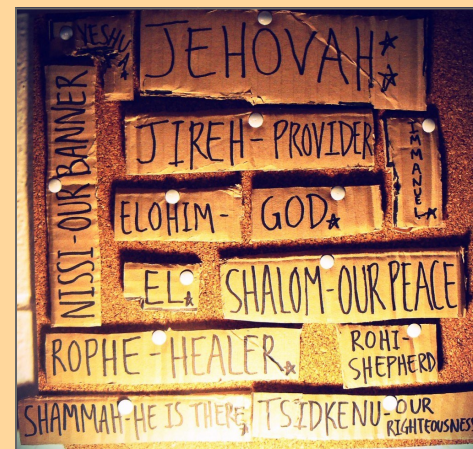 YESHUA
JEHOVAH
NISSI-OUR BANNER
JIREH-PROVIDER
IMMANUEL
ELOHIM-GOD
EL
SHALOM-OUR PEACE
ROPHE-HEALER
ROHI-
SHEPHERD
SHAMMAH-HE IS THERE
TSIDKENU-OUR
RIGHTEOUSNESS